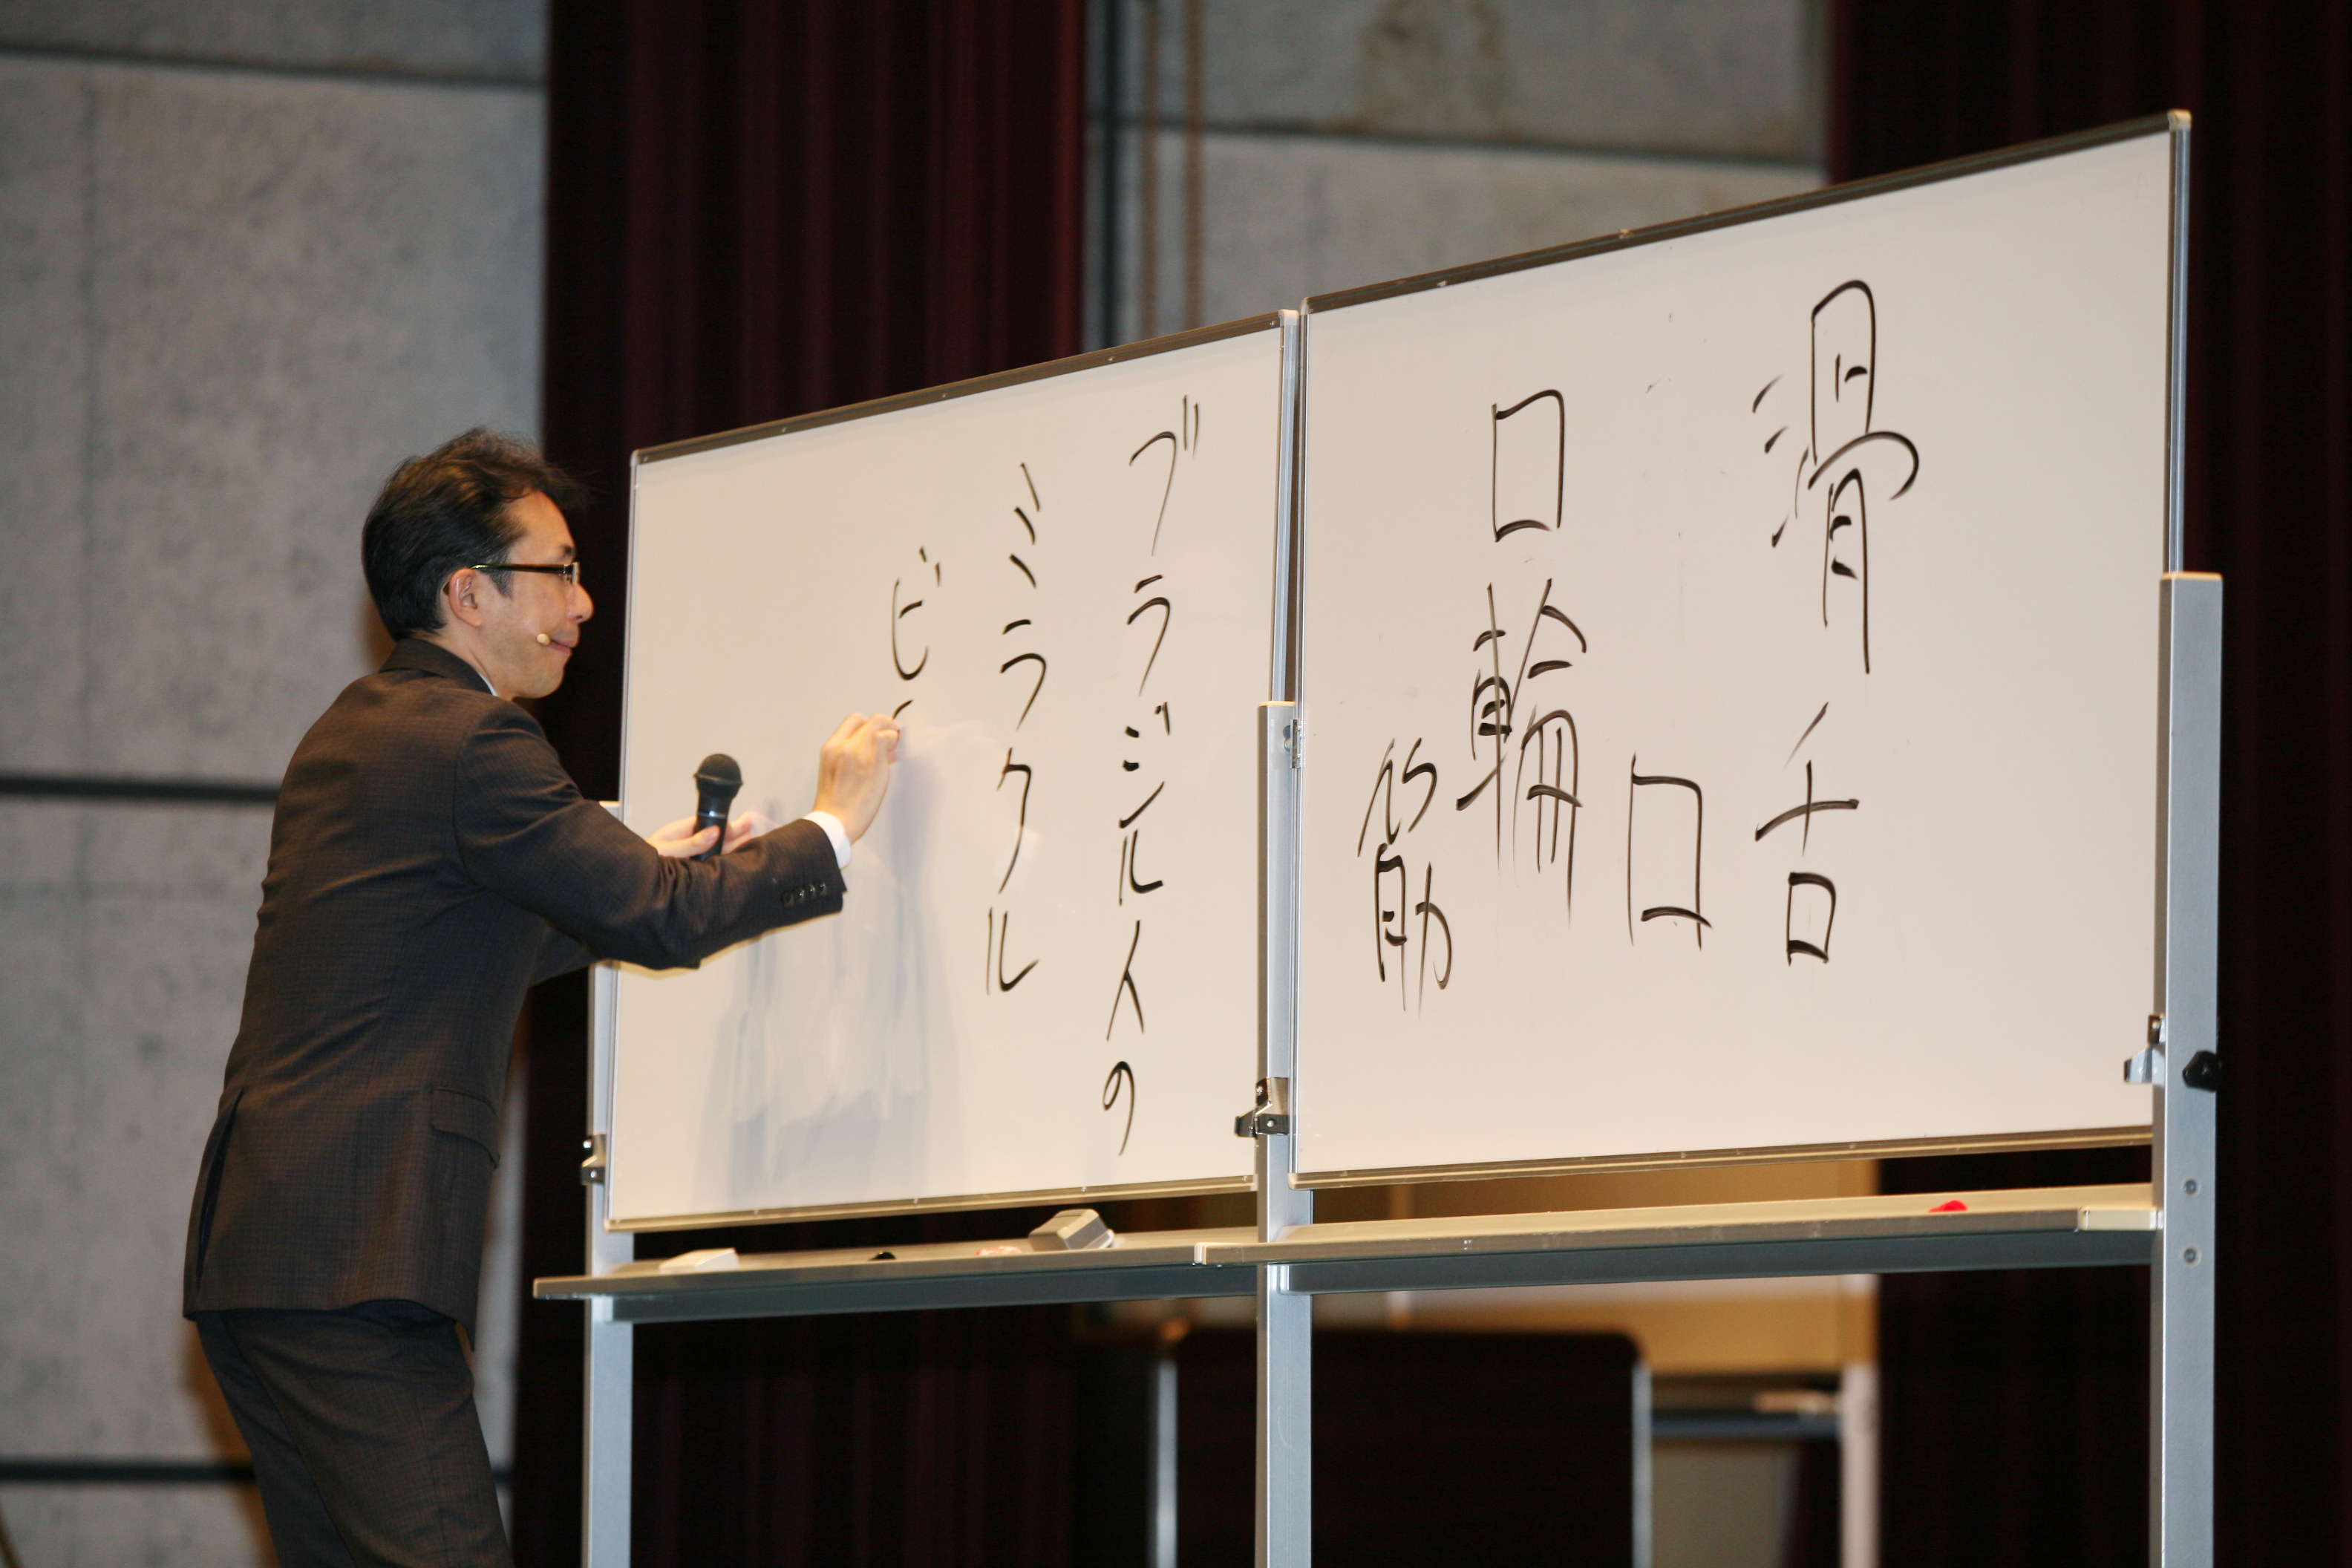 滑舌
口
口輪筋
ブラジル人の
ミラクル
ビ